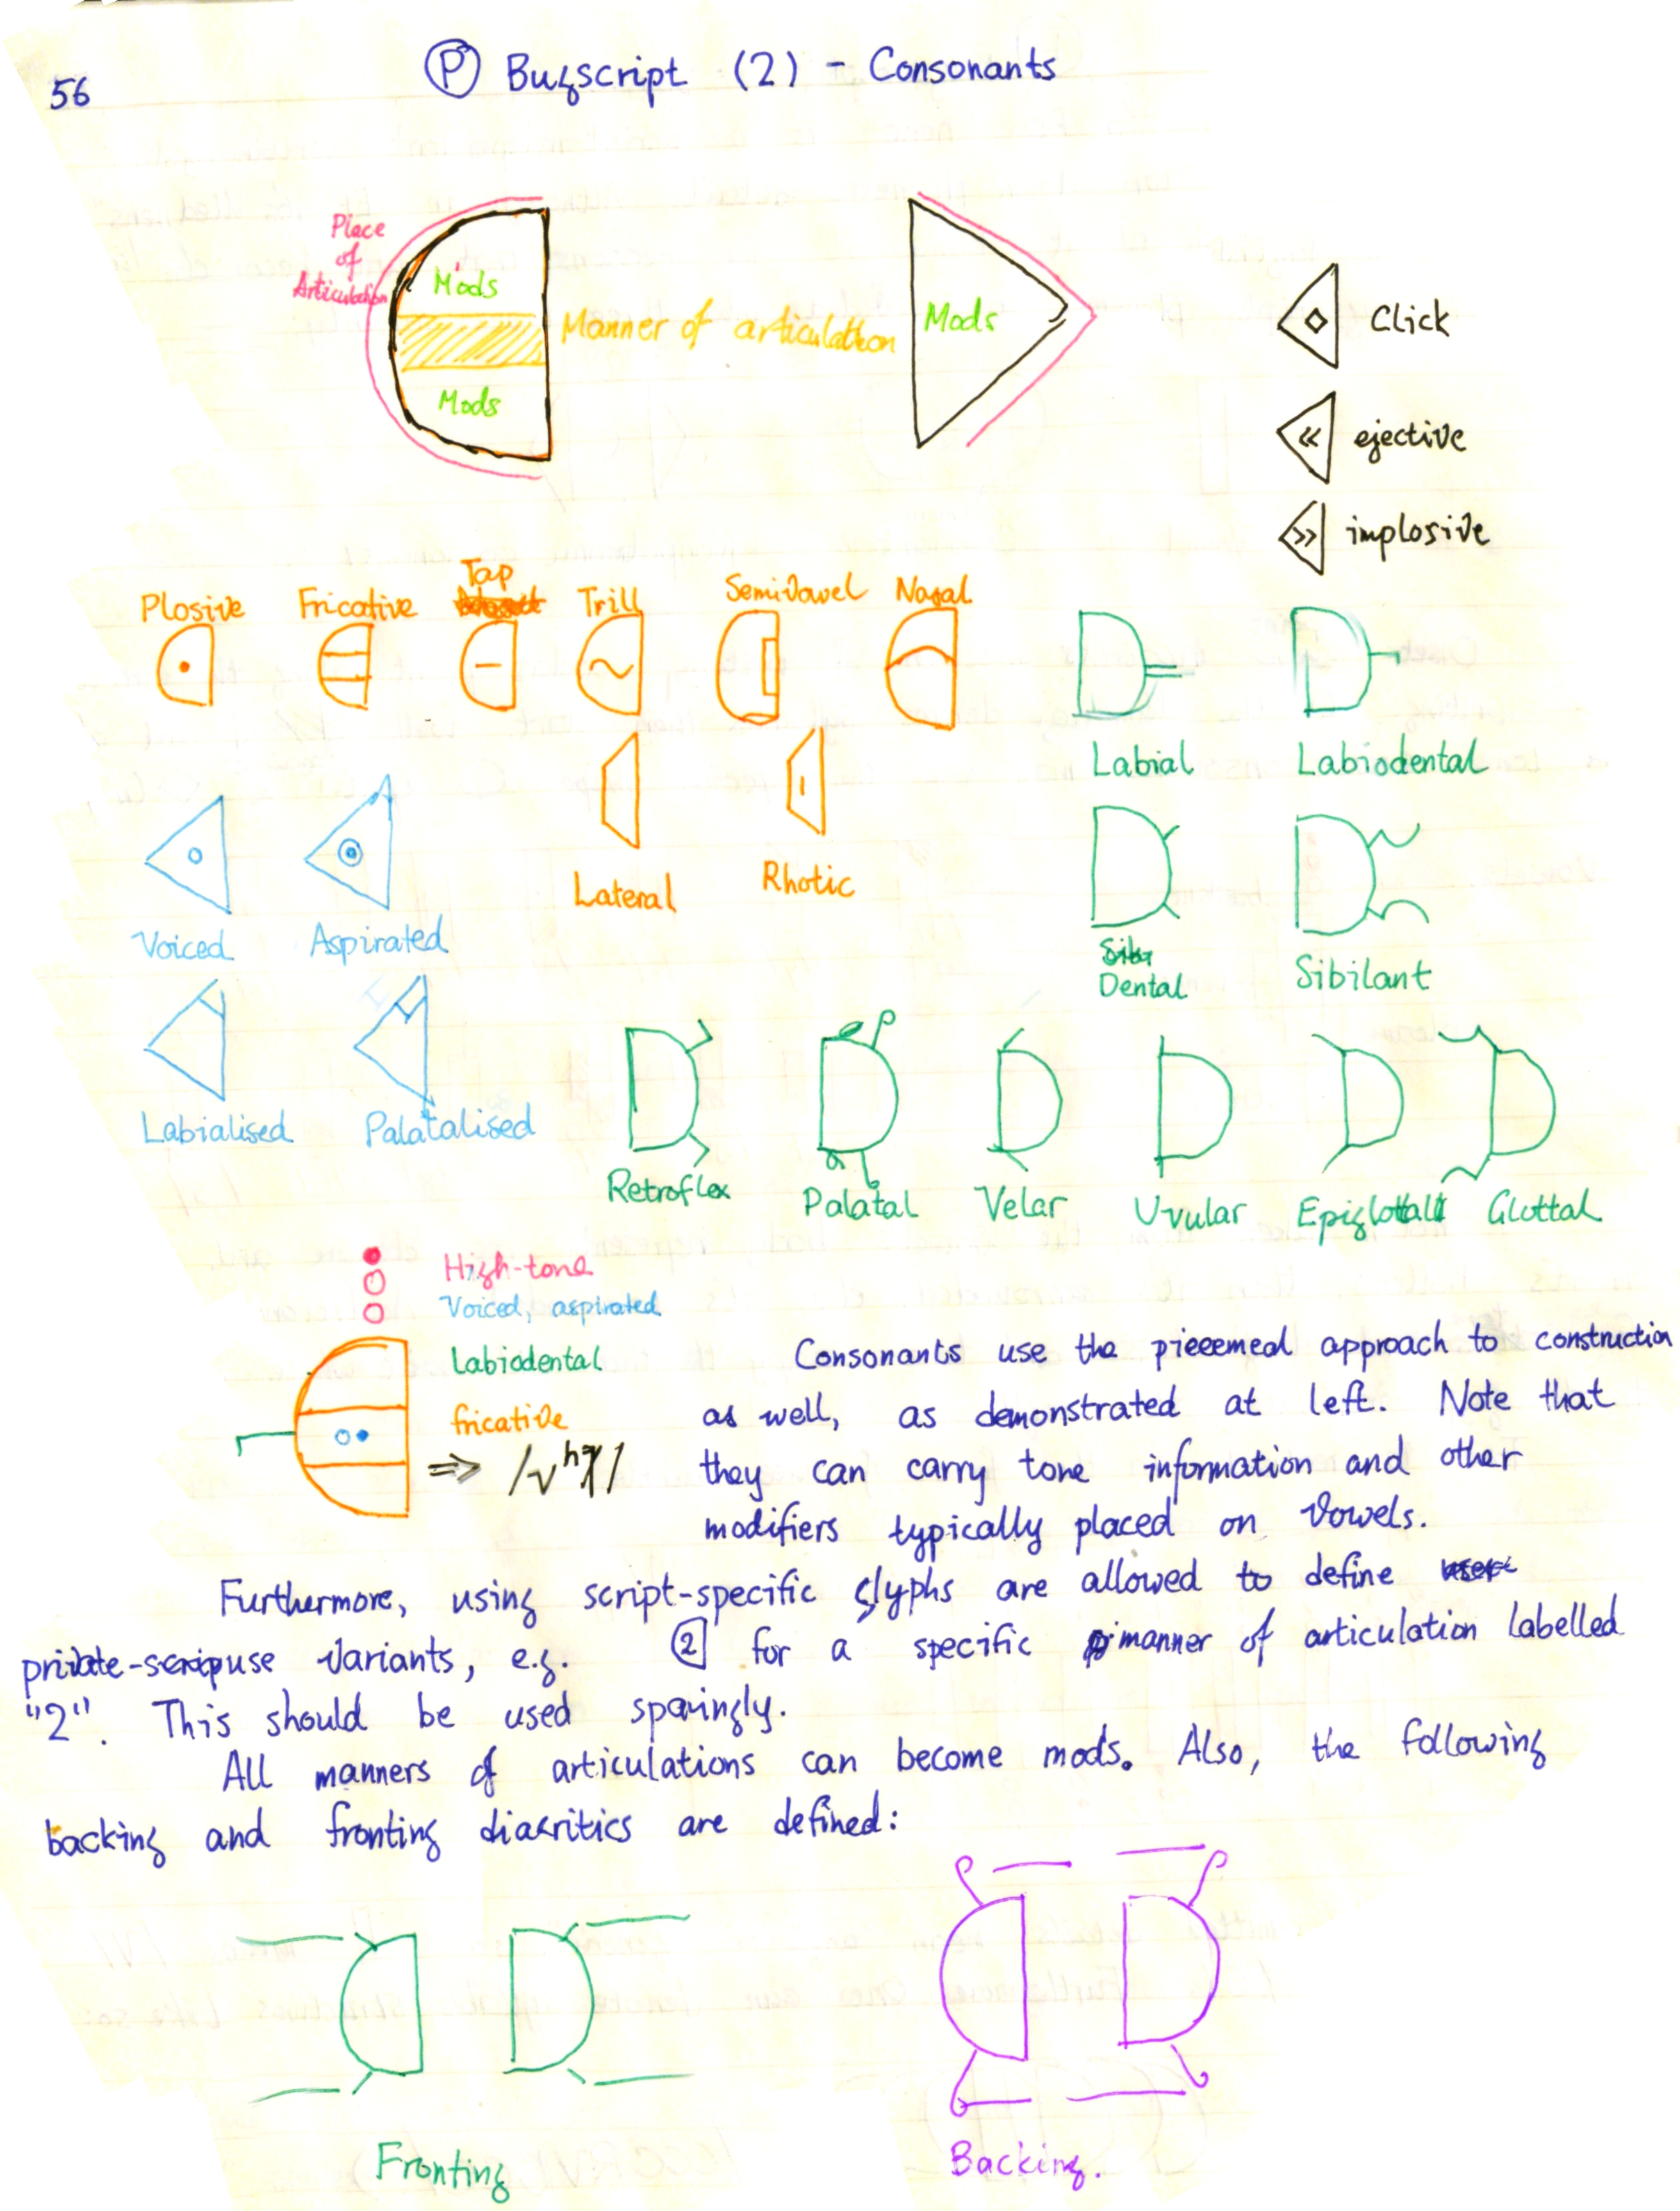 56
Ⓟ Bugscript (2) - Consonants
Place
of
Articulation
Mods
Manner of articulation
Mods
Mods
Click
ejective
implosive
Plosive
Fricative
Tap
Trill
Semivowel
Nasal
Labial
Labiodental
Lateral
Rhotic
Voiced
Aspirated
Dental
Sibilant
Labialised
Palatalised
Retroflex
Palatal
Velar
Uvular
Epiglottal
Glottal
High-tone
Voiced, aspirated
Labiodental
fricative
Consonants use the piecemeal approach to construction
as well, as demonstrated at left. Note that
they can carry tone information and other
modifiers typically placed on vowels.
Furthermore, using script-specific glyphs are allowed to define
private-use variants, e.g. 2 for a specific manner of articulation labelled
"2". This should be used sparingly.
All manners of articulations can become mods. Also, the following
backing and fronting diacritics are defined:
Fronting
Backing.